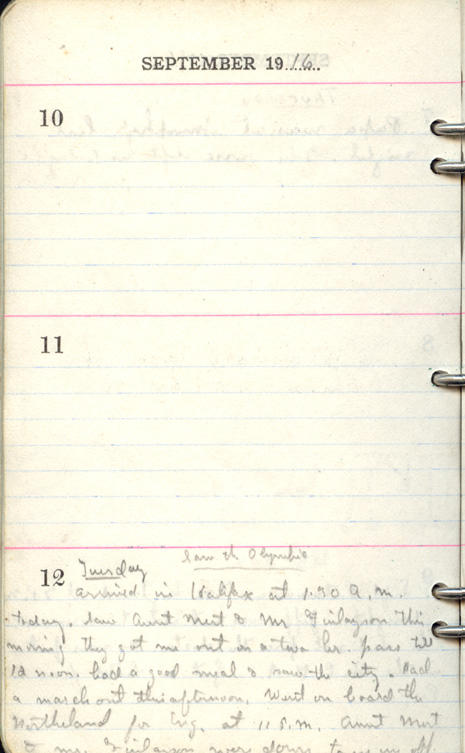 SEPTEMBER 1916
10
11
12 Tuesday saw the Olympic
arrived in Halifax at 1.30 a.m.
today. saw Aunt & Mr Finlayson this
morning they got me out on a two hr. pass till
12 noon. had a good meal & saw the city. Had
a march out this afternoon. Went on board the
Northland for Eng. at 11 P.M. Aunt
& Mr. Finlayson were down to